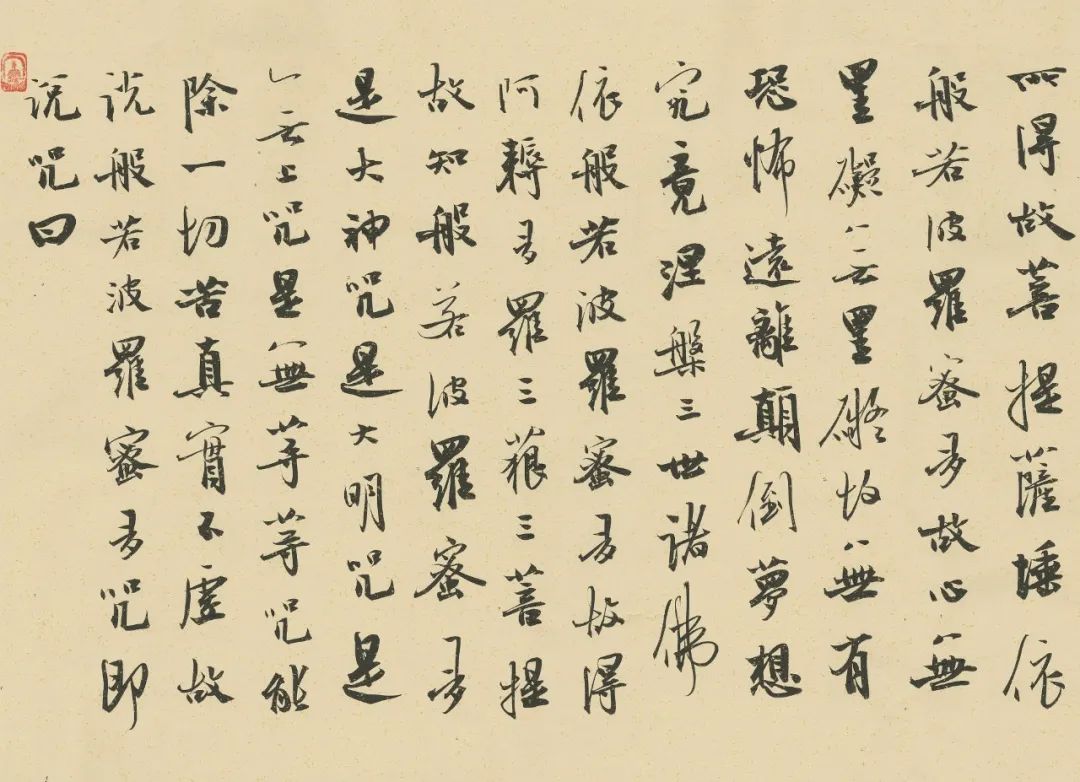 所得故菩提薩埵依
般若波羅蜜多故心無
罣礙無罣礙故無有
恐怖遠離顛倒夢想
究竟涅槃三世諸佛
依般若波羅蜜多故得
阿耨多羅三藐三菩提
故知般若波羅蜜多
是大神咒是大明咒是
無上咒是無等等咒能
除一切苦真實不虛故
說般若波羅蜜多咒即
說咒曰